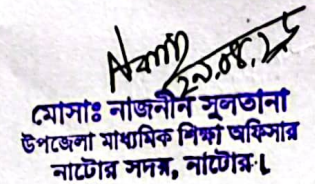 ২৯.০৪.২৫
মোসাঃ নাজনীন সুলতানা
উপজেলা মাধ্যমিক শিক্ষা অফিসার
নাটোর সদর, নাটোর।